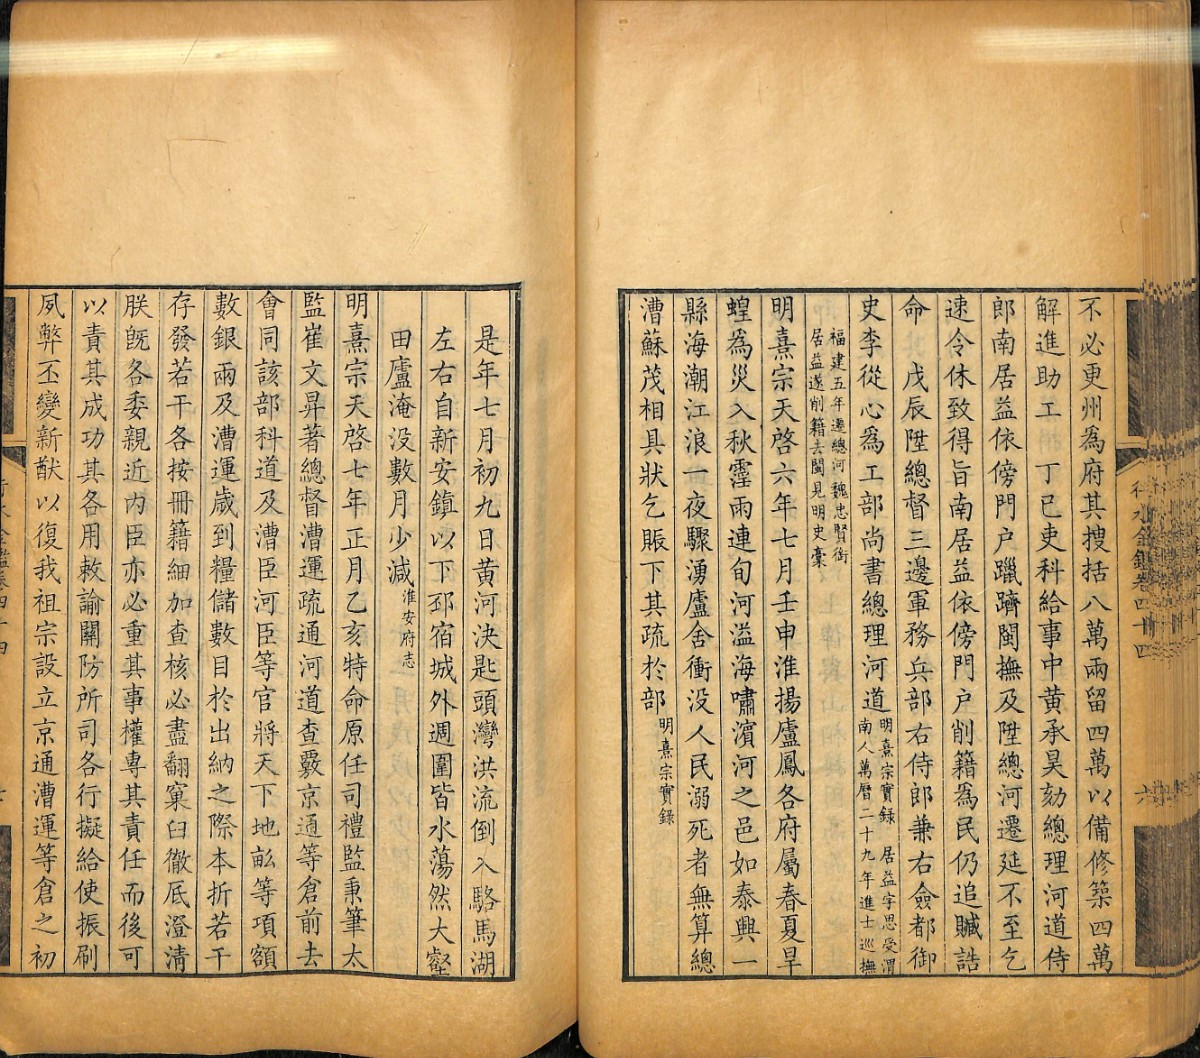 不必更州為府其搜括八萬兩留四萬以備修築四萬
解進助工 丁巳吏科給事中黄承昊劾總理河道侍
郎南居益依傍門户躐躋閩撫及陞總河遷延不至乞
速令休致得旨南居益依傍門户削籍為民仍追贓誥
命 戊辰陞總督三邊軍務兵部右侍郎兼右僉都御
史李從心為工部尚書總理河道明熹宗實録 居益字思受渭
南人萬曆二十九年進士巡撫
福建五年遷總河魏忠賢銜
居益遂削籍去閩見明史稾
明熹宗天啓六年七月壬申淮揚廬鳳各府屬春夏旱
蝗為災入秋霪雨連旬河溢海嘯濵河之邑如泰興一
縣海潮江浪一夜驟湧廬舍衝没人民溺死者無算總
漕蘇茂相具狀乞賑下其疏於部明熹宗實録
行水金鑑卷四十四
六
是年七月初九日黄河決匙頭灣洪流倒入駱馬湖
左右自新安鎮以下邳宿城外週圍皆水蕩然大壑
田廬淹没數月少減淮安府志
明熹宗天啓七年正月乙亥特命原任司禮監秉筆太
監崔文昇著總督漕運疏通河道查覈京通等倉前去
會同該部科道及漕臣河臣等官將天下地畝等項額
數銀兩及漕運歲到糧儲數目於出納之際本折若干
存發若干各按冊籍細加查核必盡翻窠臼徹底澄清
朕既各委親近内臣亦必重其事權專其責任而後可
以責其成功其各用敕諭關防所司各行擬給使振刷
夙弊丕變新猷以復我祖宗設立京通漕運等倉之初